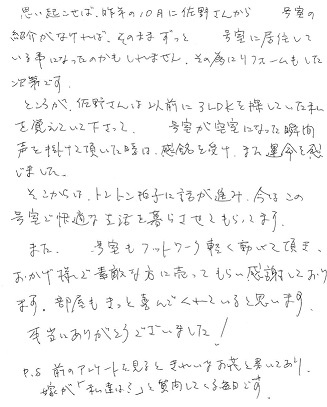 思い起こせば、昨年の10月に佐野さんから　　号室の
紹介がなければ、そのままずっと　　号室に居住して
いる事になったのかもしれません。その為にリフォームもした
次第です。
ところが、佐野さんは以前に3LDKを探していた私
を覚えていて下さって、　　号室が空室になった瞬間
声を掛けて頂いた時は、感銘を受け、また運命を感
じました。
そこからは、トントン拍子に話が進み、今はこの
号室で快適な生活を暮らさせてもらってます。
また、　　号室もフットワーク軽く動いて頂き、
おかげ様で素敵な方に売ってもらい感謝しており
ます。部屋もきっと喜んでくれていると思います。
本当にありがとうございました！
P.S 前のアンケートを見ると きれいなお花と書いてあり、
嫁が「私達は？」と質問している毎日です。